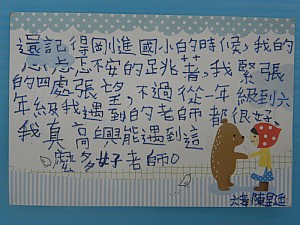 還記得剛進國小的時候,我的
心忐忑不安的跳著,我緊張
的四處張望,不過從一年級到六
年級我遇到的老師都很好,
我真高興能遇到這
麼多好老師。
六年 陳昱